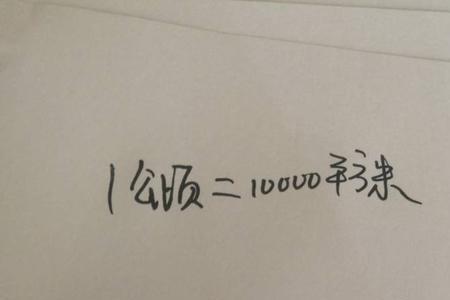 1公顷=10000平方米